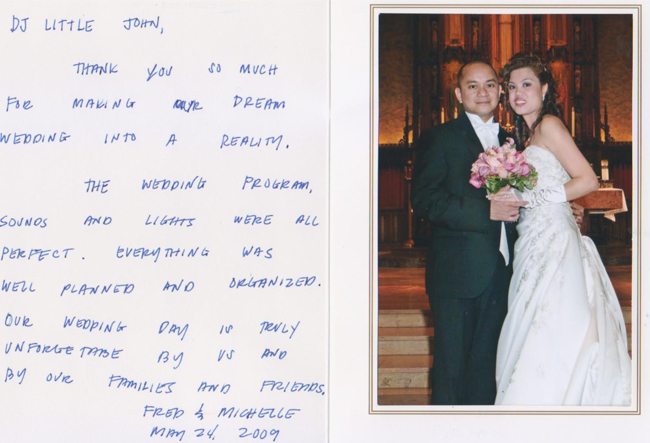 DJ LITTLE JOHN,
THANK YOU SO MUCH
FOR MAKING OUR DREAM
WEDDING INTO A REALITY.
THE WEDDING PROGRAM,
SOUNDS AND LIGHTS WERE ALL
PERFECT. EVERYTHING WAS
WELL PLANNED AND ORGANIZED.
OUR WEDDING DAY IS TRULY
UNFORGETABE BY US AND
BY OUR FAMILIES AND FRIENDS.
FRED & MICHELLE
MAY 24, 2009